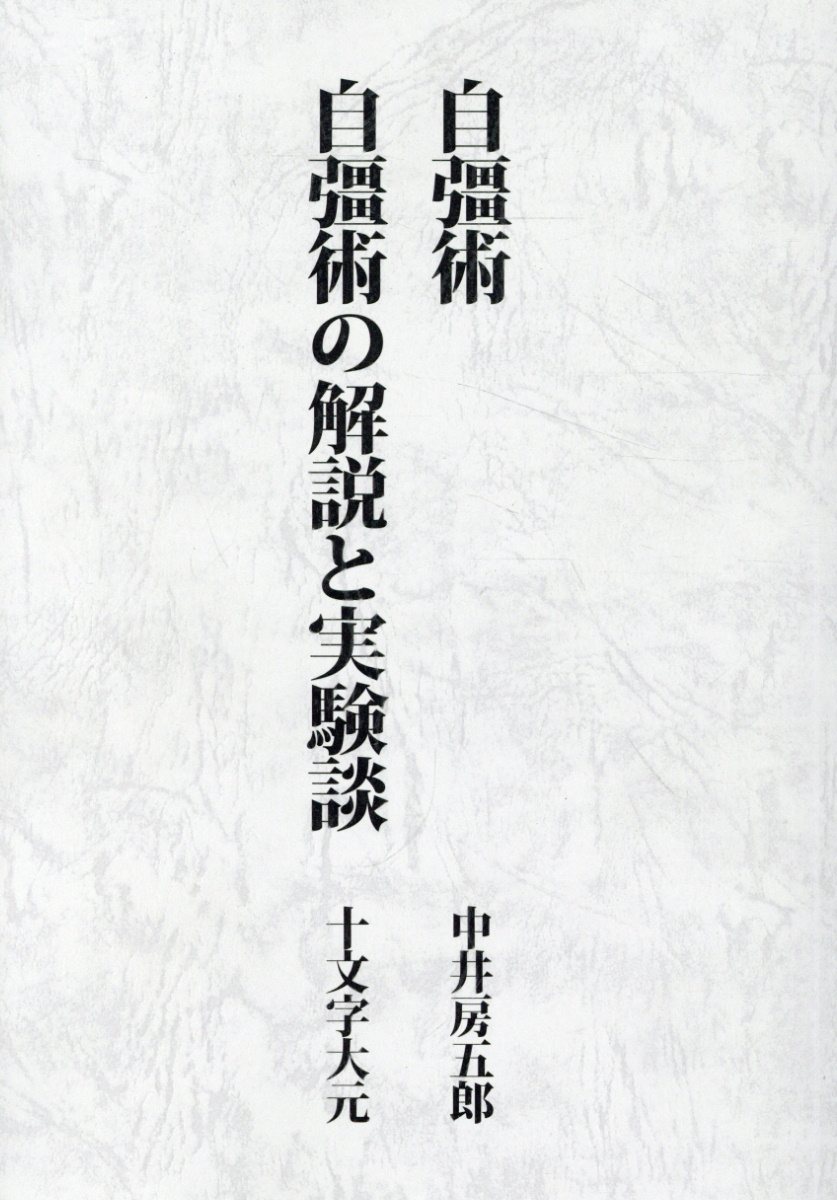 自彊術
中井房五郎
自彊術の解説と実験談
十文字大元